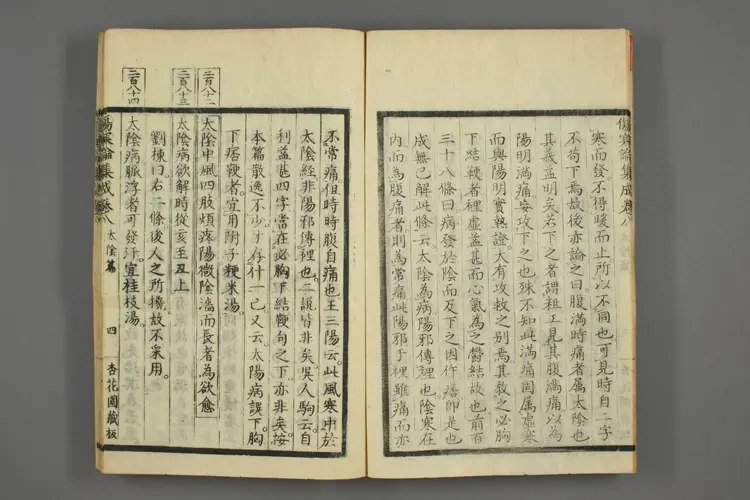 傷寒論集成卷八
寒而發。不得暖而止。所以不同也。可見時自二字
不苟下焉。故後亦論之曰。腹滿時痛者。屬太陰也。
其義益明矣。若下之者。謂粗工見其腹滿。以為
陽明滿痛。妄攻下之也。殊不知此滿痛固屬虛寒。
而與陽明實熱證。大有攻救之別焉。其救之必胸
下結鞕者。裡虛益甚。而心氣為之鬱結故也。前百
三十八條曰。病發於陰。而反下之。因作痞。即是也。
成無己解此條云。太陰為病。陽邪傳裡也。陰寒在
內而為腹痛者。則為常痛。此陽邪于裡。雖痛而亦
不常痛。但時時腹自痛也。王三陽云。此風寒中於
太陰經。非陽邪傳裡也。二說皆非矣。吳人駒云。自
利益甚四字。當在必胸下結鞕句之下。亦非矣。按
本篇散逸不少。才存什一已。又云。太陽病誤下。胸
下痞鞕者。宜用附子粳米湯。
二百八十二
太陰中風。四肢煩疼。陽微陰濇而長者。為欲愈。
二百八十三
太陰病欲解時。從亥至丑上。
劉棟曰。右二條。後人之所攙。故不采用。
二百八十四
太陰病脈浮者。可發汗。宜桂枝湯。
傷寒論集成卷八 太陰篇 四 杏花園藏板